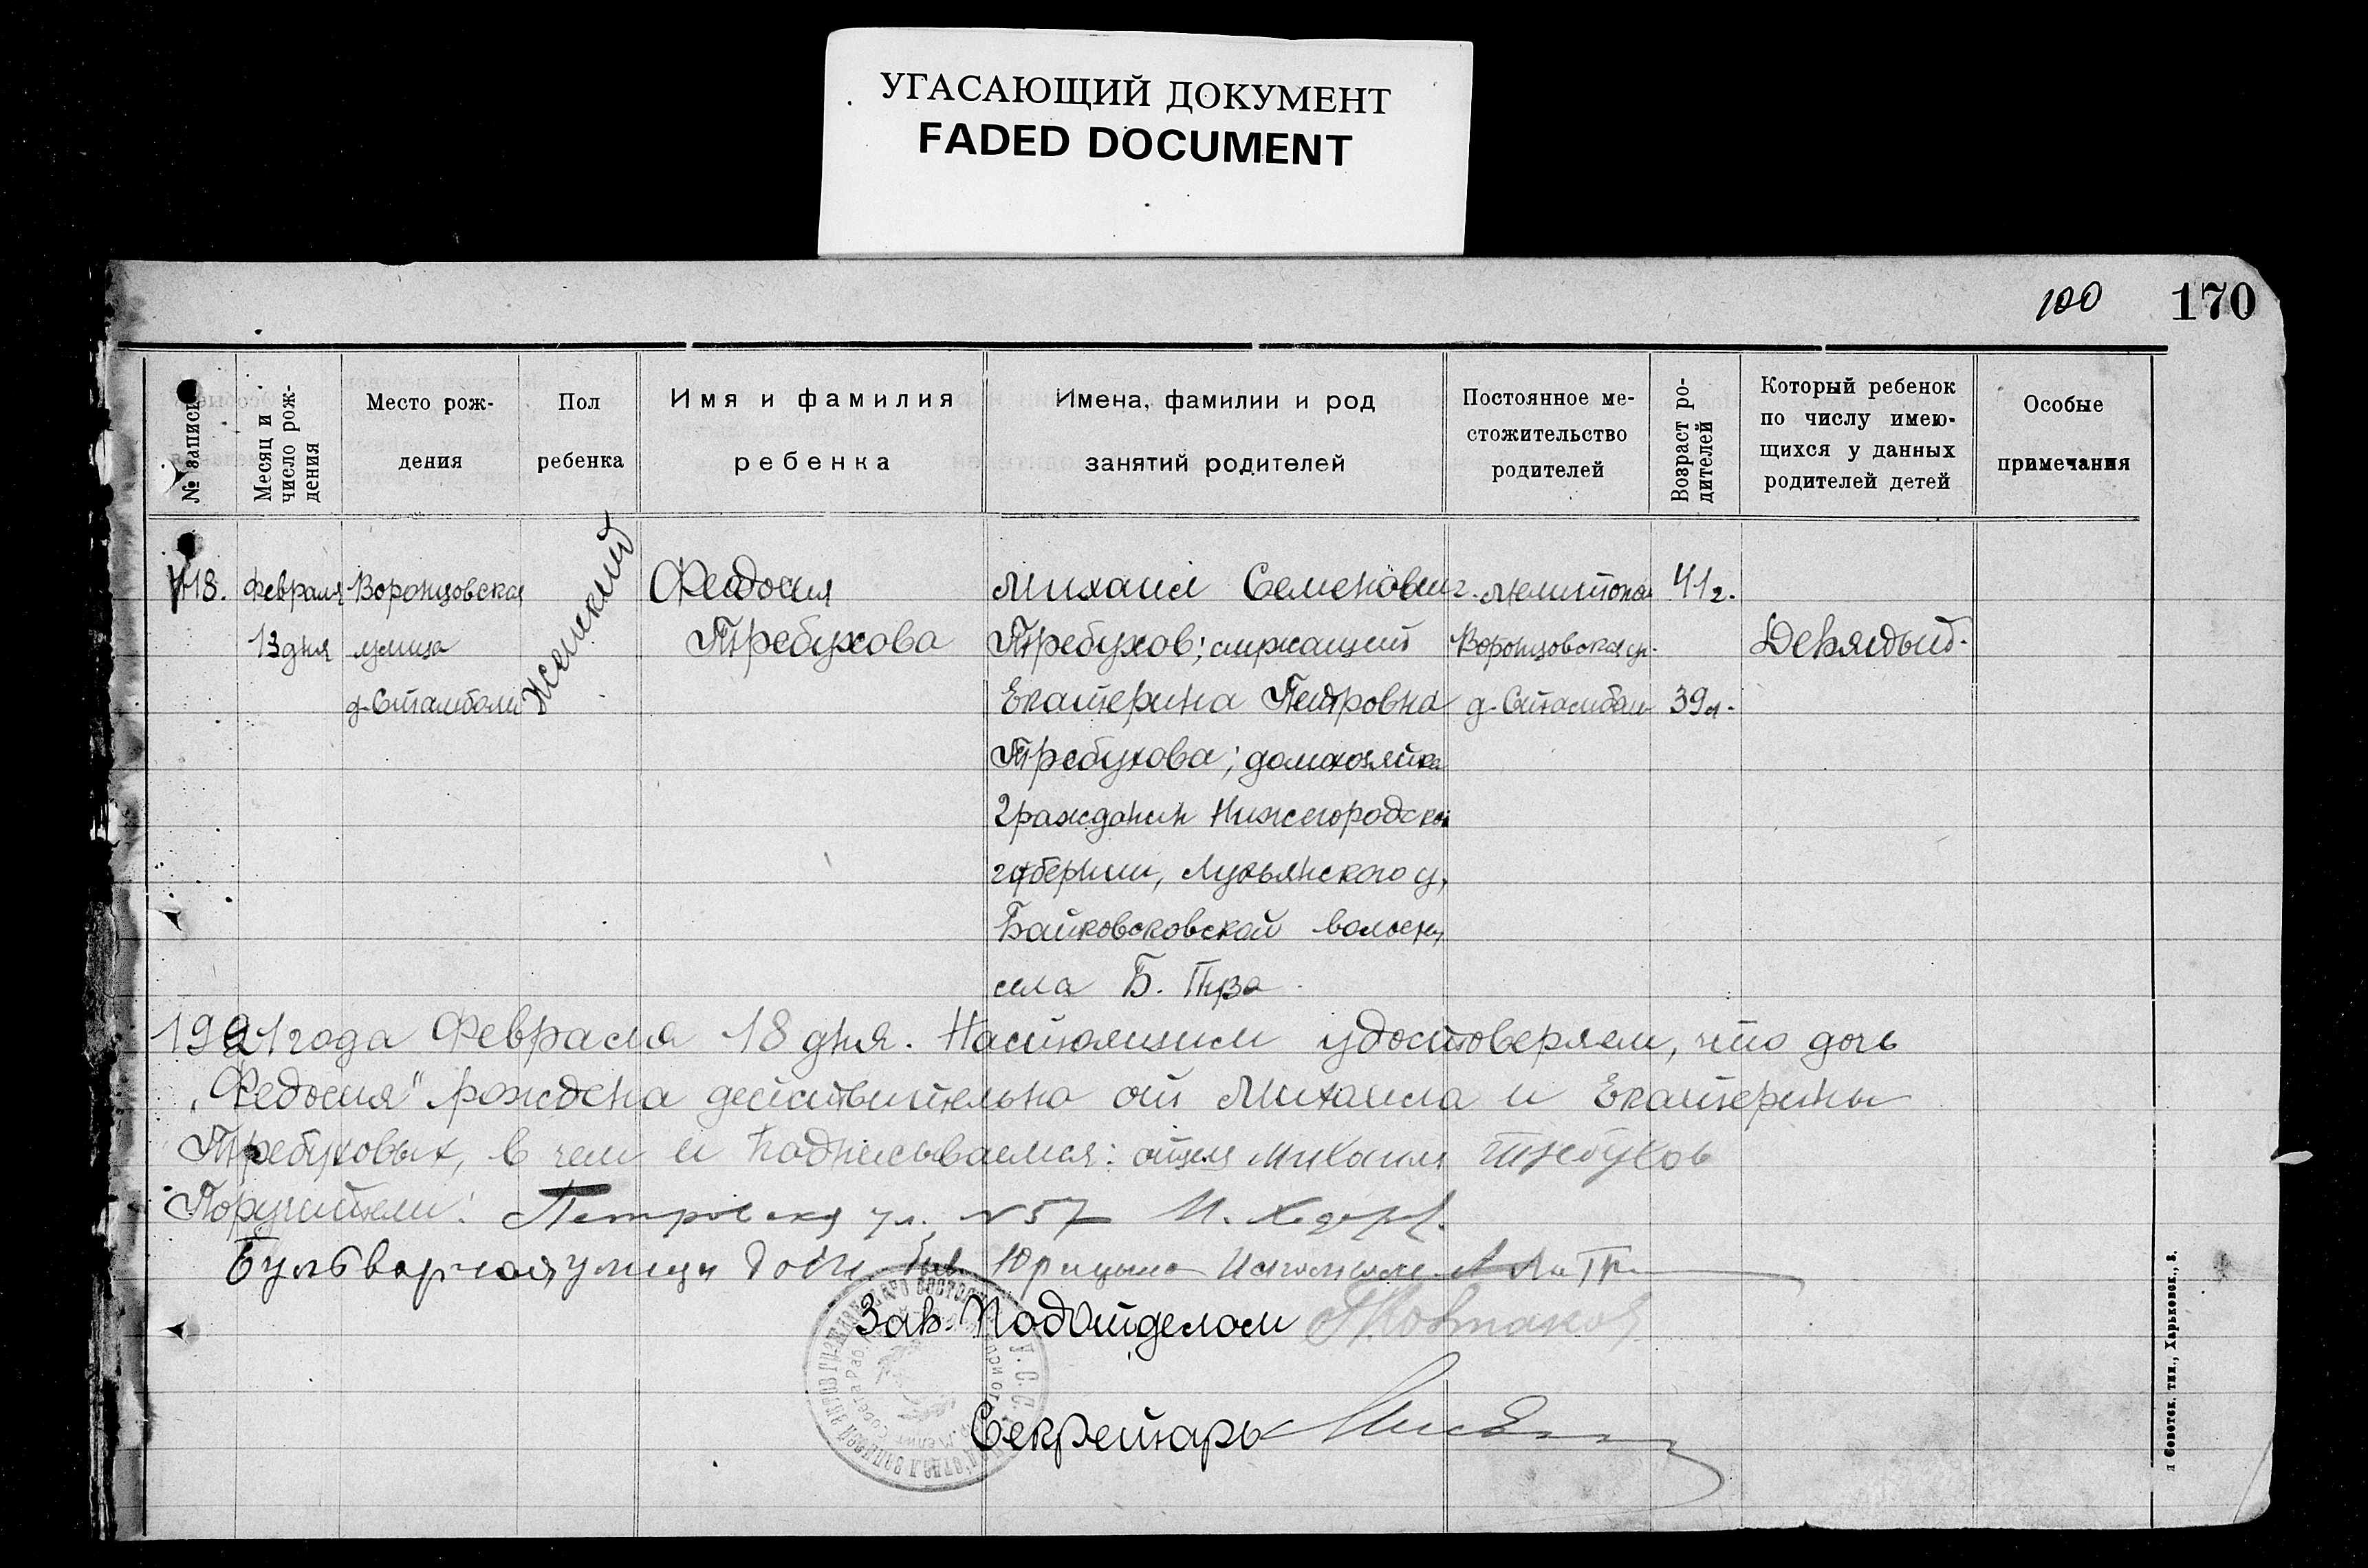 УГАСАЮЩИЙ ДОКУМЕНТ
FADED DOCUMENT
100 170
№ записи
Месяц и число рож-дения
Место рож-дения
Пол ребенка
Имя и фамилия ребенка
Имена, фамилии и род занятий родителей
Постоянное ме-стожительство родителей
Возраст ро-дителей
Который ребенок по числу имею-щихся у данных родителей детей
Особые примечания
118.
Февраля
13 дня
Воронцовская
улица
д. Стамболи
Женский
Феодосия
Требухова
Михаил Семенович
Требухов; служащий
Екатерина Петровна
Требухова; домохозяйка
Граждан Нижегородской
губернии, Лукьянского у,
Байковсковской волости,
села Б. Пуза
г. Мелитополь
Воронцовская ул.
д. Стамболи
41 г.
39 л.
Девятый.
1921 года Февраля 18 дня. Настоящим удостоверяем, что дочь
„Федосия" рождена действительно от Михаила и Екатерины
Требуховых, в чем и подписываемся: отец Михаил Требухов
Поручители: Петровская ул. №57
Бульварная улица
Зав. Подотделом
Секретарь
У.С.С.
Советск. тип., Харьковск., 3.